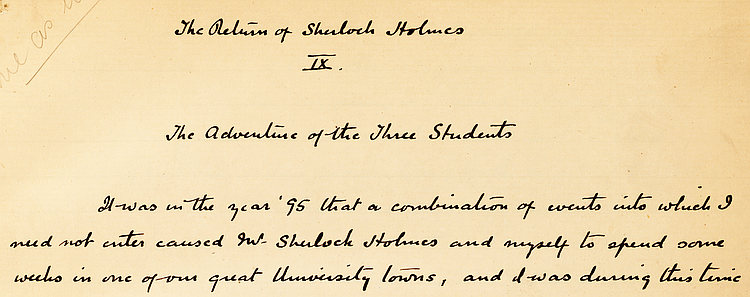 The Return of Sherlock Holmes
IX.
The Adventure of the Three Students
It was in the year '95 that a combination of events into which I
need not enter caused Mr. Sherlock Holmes and myself to spend some
weeks in one of our great University towns, and it was during this time